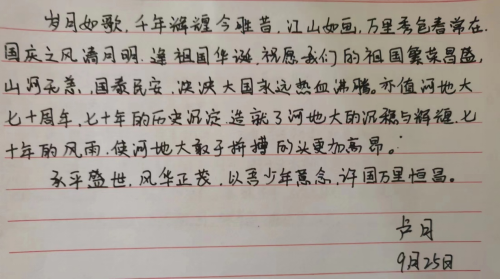 岁月如歌，千年辉煌今胜昔，江山如画，万里秀色春常在。
国庆之风清月明，逢祖国华诞，祝愿我们的祖国繁荣昌盛，
山河无恙，国泰民安，泱泱大国永远热血沸腾。亦值河地大
七十周年，七十年的历史沉淀，造就了河地大的沉稳与辉煌，七
十年的风雨，使河地大敢于拼搏的心更加高昂。
承平盛世，风华正茂，以吾少年意念，许国万里恒昌。
卢月
9月25日